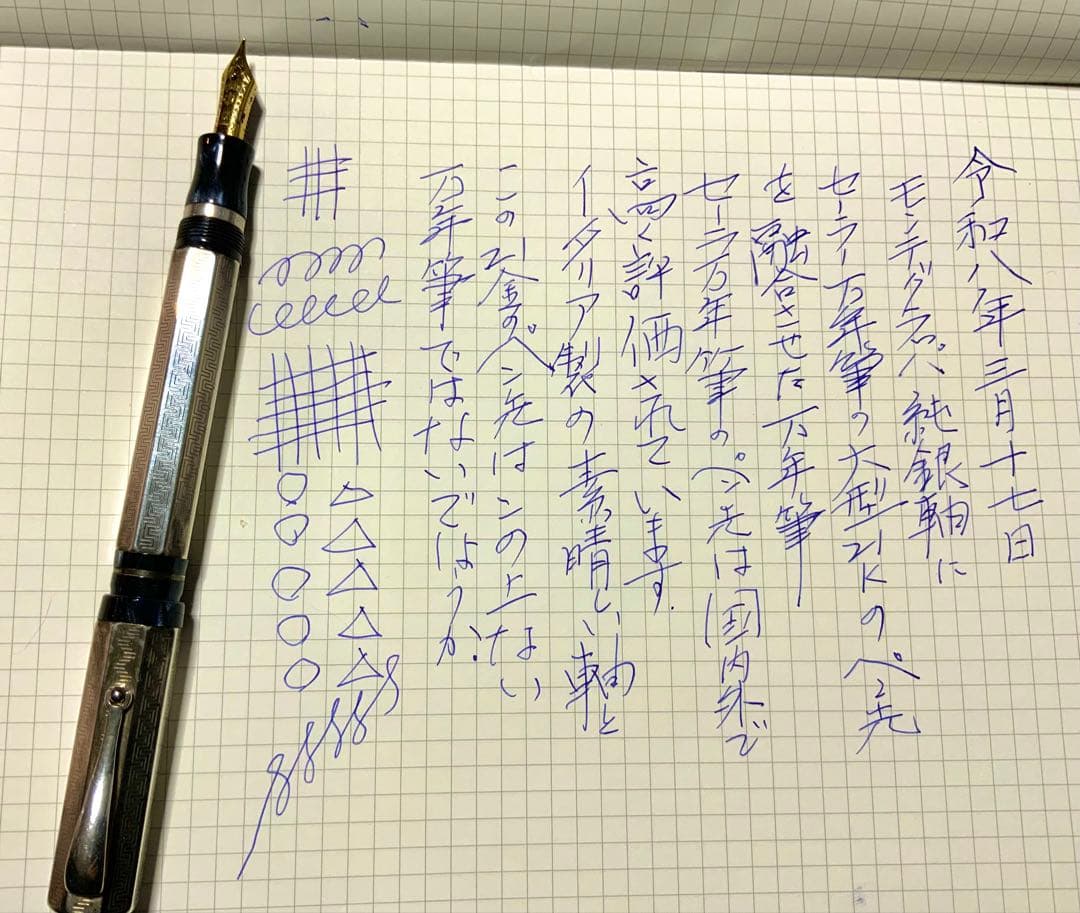 令和八年三月十七日
モンテグラッパ純銀軸に
セーラー万年筆の大型21Kのペン先
を融合させた万年筆
セーラー万年筆のペン先は国内外で
高く評価されています.
イタリア製の素晴しい軸と
この21金のペン先はこの上ない
万年筆ではないでしょうか.